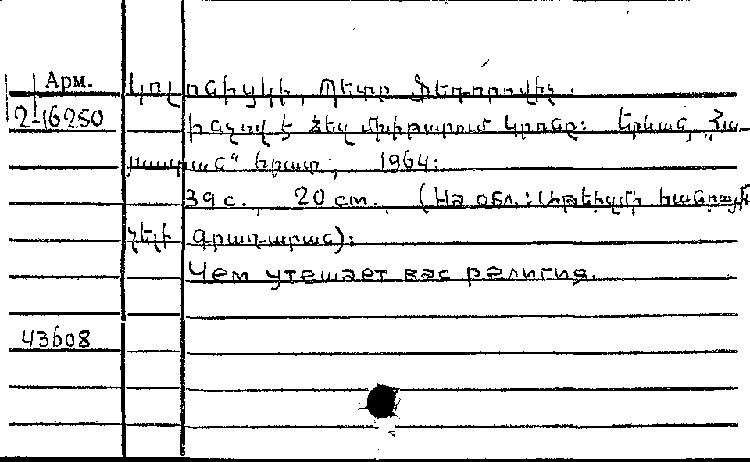 Арм.
Կոլոնիցկի, Պետր Ֆեդորովիչ.
2-16250
Ինչով է ձեզ մխիթարում կրոնը: Երևան, Հա-
յաստան" հրատ., 1964:
39 с. 20 см. (На обл.: Աթեիզմի հանրամատ-
չելի գրադարան):
Чем утешает вас религия.
43608